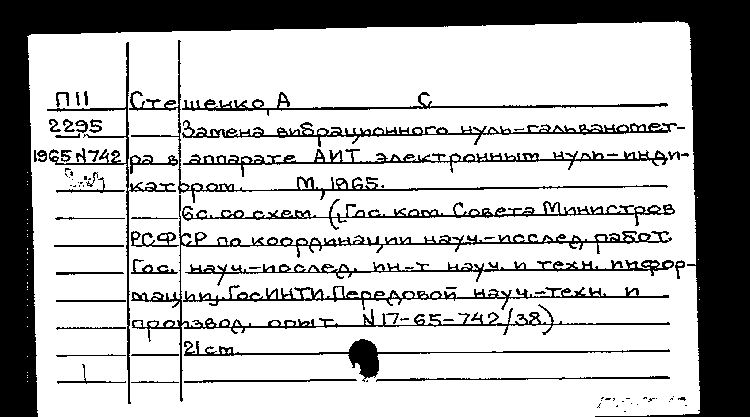 П11 Стешенко, А С
2295 Замена вибрационного нуль-гальваномет-
1965 N742 ра в аппарате АИТ электронным нуль-инди-
катором. М., 1965.
6с. со схем. (Гос. ком. Совета Министров
РСФСР по координации науч.-исслед. работ.
Гос. науч.-исслед. ин-т науч. и техн. инфор-
мации. ГосИНТИ. Передовой науч.-техн. и
производ. опыт. N17-65-742/38).
21 cm.